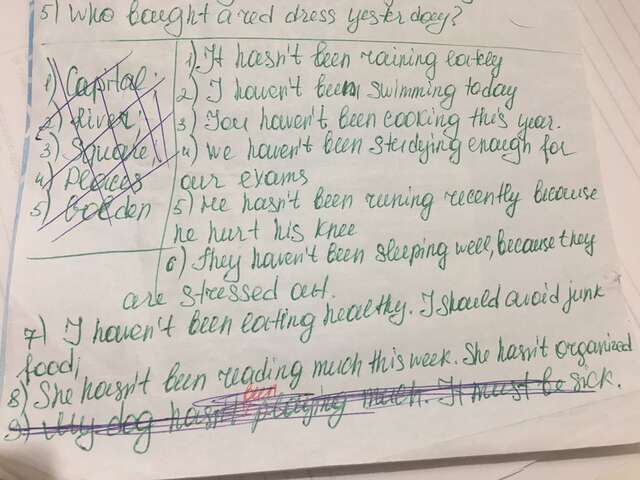 5) Who bought a red dress yesterday?
1) Capital.
2) River;
3) Square;
4) Places
5) Golden
1). It hasn't been raining lately
2) I haven't been swimming today
3) You haven't been cooking this year.
4) We haven't been studying enough for
our exams
5) He hasn't been runing recently because
he hurt his knee
6) They haven't been sleeping well, because they
are stressed out.
7) I haven't been eating healthy. I should avoid junk
food;
8) She hasn't been reading much this week. She hasn't organized
9) My dog hasn't been playing much. It must be sick.